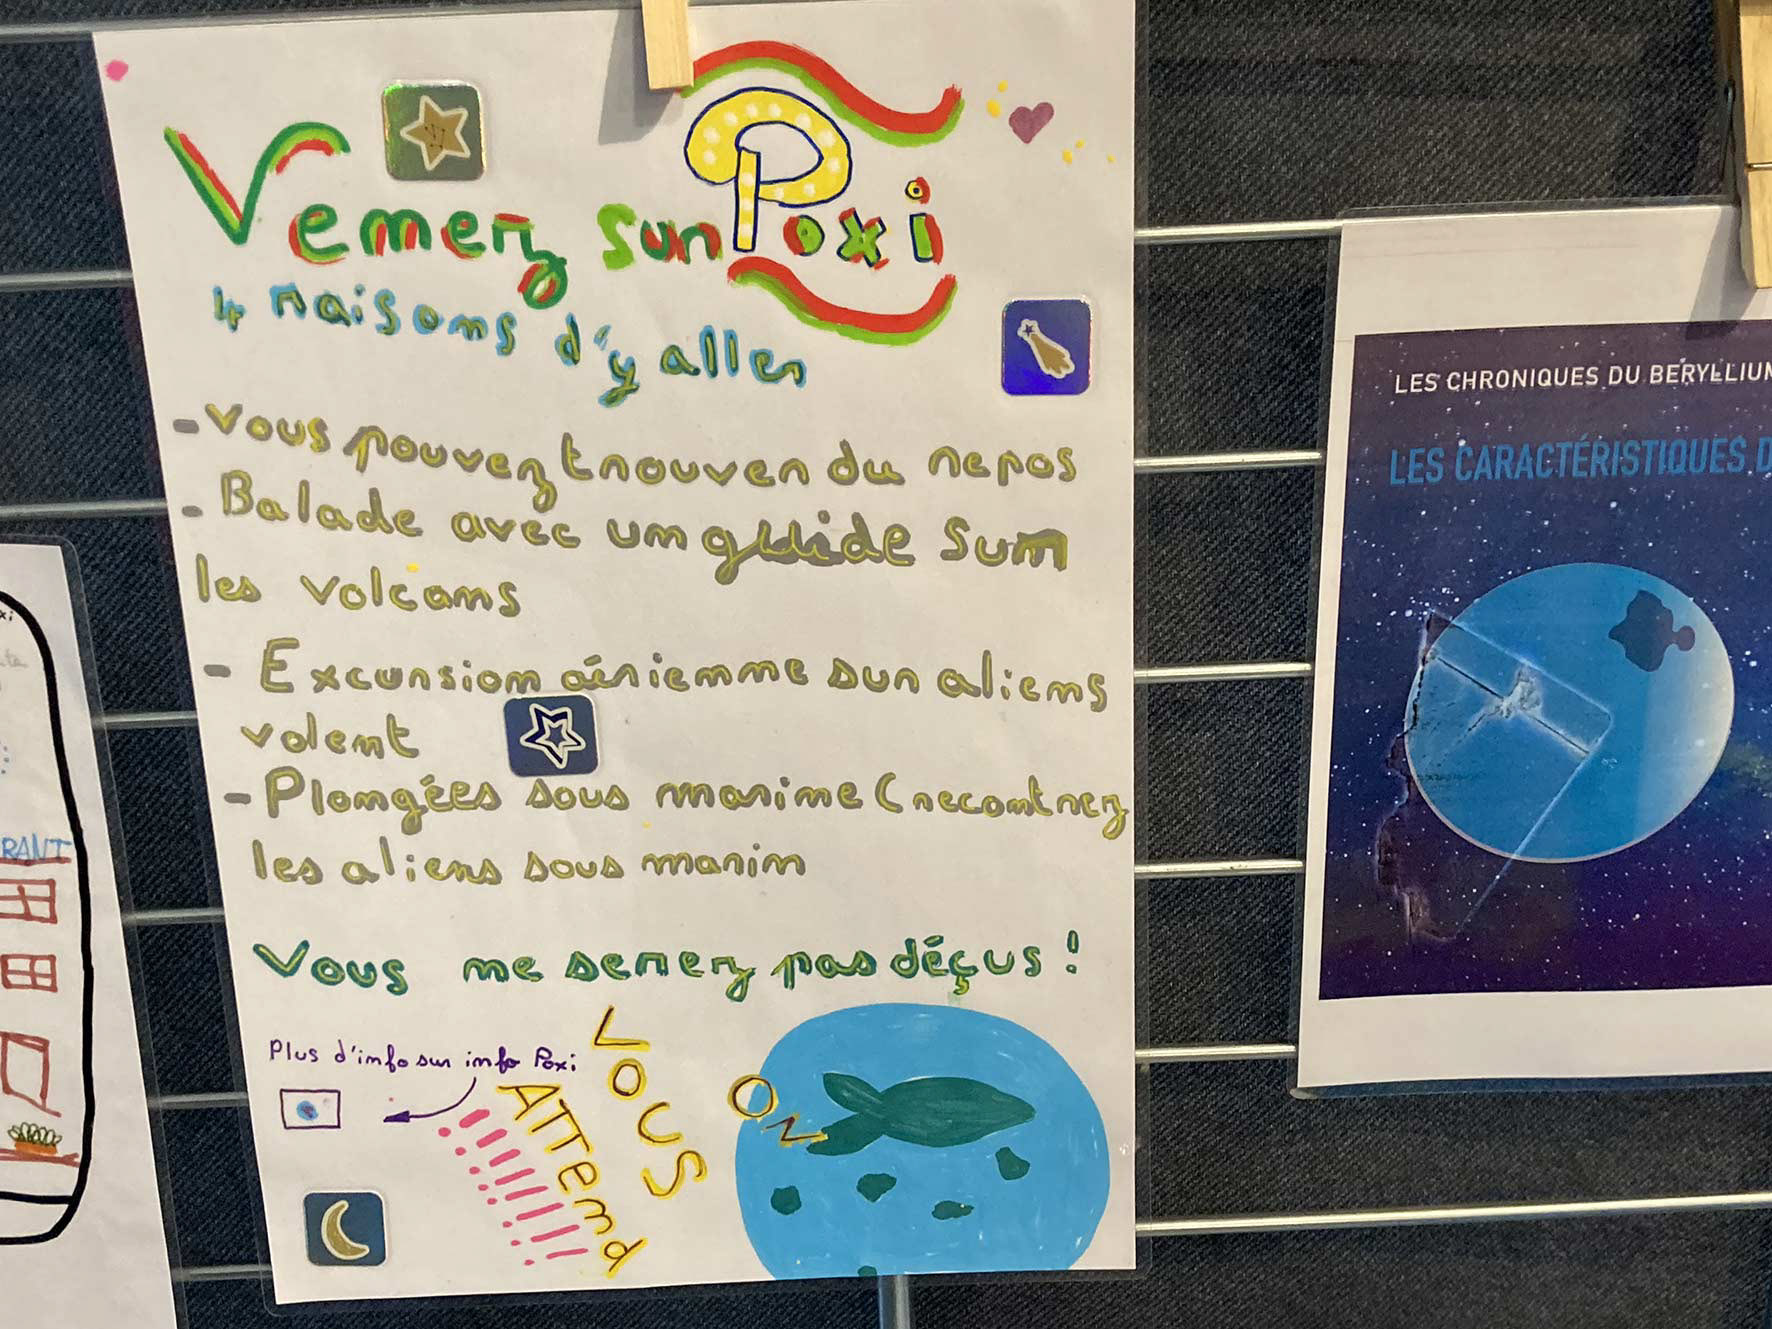 Venez sur Poxi
4 raisons d'y aller
- Vous pouvez trouver du repos
- Balade avec un guide sur
les volcans
- Excursion aérienne sur aliens
volent
- Plongées sous marine (recontrez
les aliens sous marin
Vous ne serez pas déçus !
Plus d'info sur info Poxi
ON
VOUS
ATTend
!!!!!!!
RANT
LES CHRONIQUES DU BERYLLIUM
LES CARACTÉRISTIQUES D